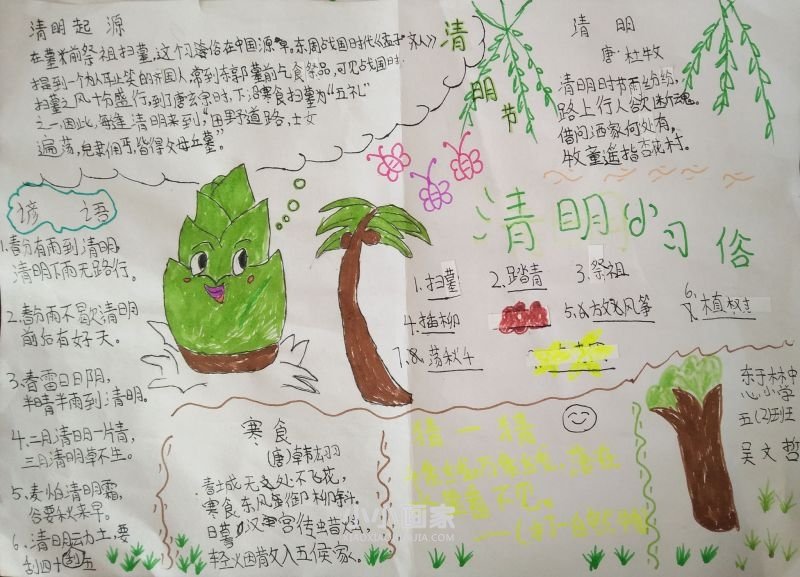 清明起源
在墓前祭祖扫墓,这个习俗在中国源早。东周战国时代《孟子·齐人》
提到一个为人耻笑的齐国人,常到东郭墓前乞食祭品,可见战国时
扫墓之风十分盛行,到了唐玄宗时,下诏寒食扫墓为“五礼”
之一,因此,每逢清明来到“田野道路,士女
遍荡,皂隶佣丐,皆得父母丘墓”。
清
明
节
清明
唐·杜牧
清明时节雨纷纷,
路上行人欲断魂。
借问酒家何处有,
牧童遥指杏花村。
谚语
1.春分有雨到清明,
清明下雨无路行。
2.春分雨不歇清明
前后有好天。
3.春雷日日阴,
半晴半雨到清明。
4.二月清明一片青,
三月清明草不生。
5.麦怕清明霜,
谷要秋来旱。
6.清明动土,要
刮四十五
清明小习俗
1.扫墓
2.踏青
3.祭祖
4.插柳
5.放飞风筝
6.植树
7.荡秋千
寒食
(唐)韩翃
春城无处不飞花,
寒食东风御柳斜。
日暮汉宫传蜡烛,
轻烟散入五侯家。
猜一猜
东于林中
心小学
五(2)班
吴文哲
小小画家
XIAOXIAOHUAJIA.COM